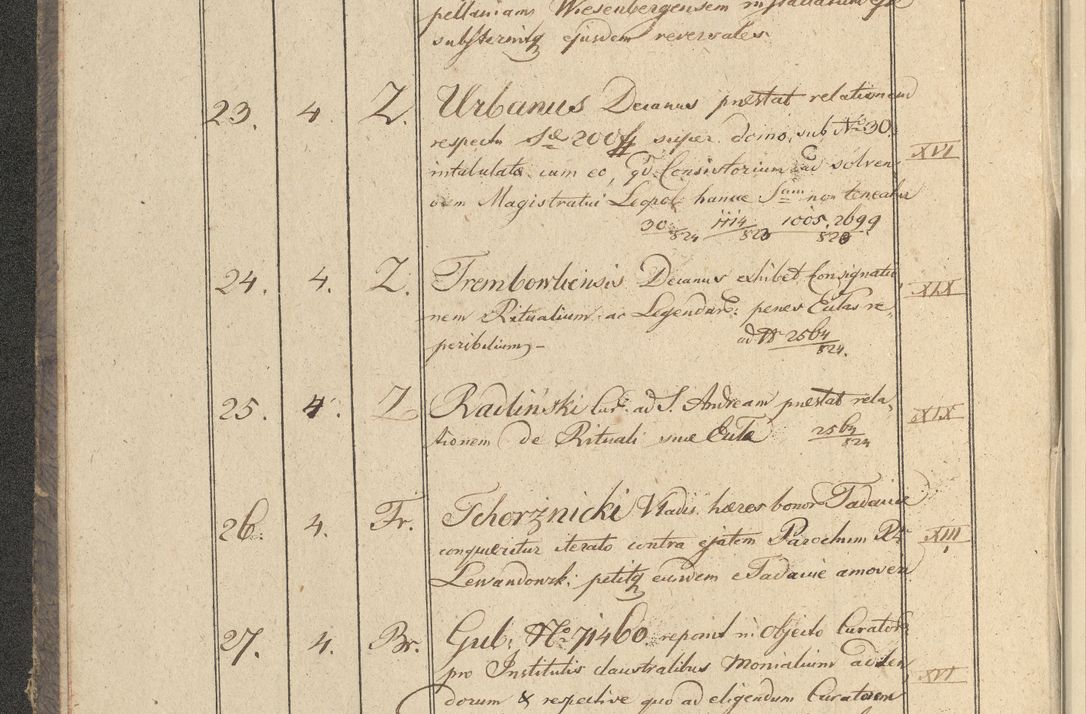 pellaniam Wiesenbergensem
substernitq ejusdem reversales
23. 4. Z. Urbanus Decanus præstat relationem
respectu Sæ 200 f super domo sub No 30
intabulata cum eo, qd Consistorium ad solven
dam Magistratui Leopol. hancce Sam non teneatur XVI
30/824 1114/823 1005. 2699/823
24. 4. Z. Trembowliensis Decanus exhibet Consignatio
nem Ritualium ac Legendar: penes Eccłas re XIX
peribilium,- ad N 2564/824.
25. 4. Z Radliński Cur. ad S. Andream præstat rela-
tionem de Rituali suæ Eccłæ 2564/824 XIX
26. 4. Fr. Tchorżnicki Vladis. hæres bonor Tadanie
conqueritur iterato contra ejatem Parochum XIII
Lewandowsk: petitq eundem e Tadanie amoveri
27. 4. Br. Gub: No 71460. reponit in objecto Curator
pro Institutis claustralibus Monialium adden
dorum & respective quo ad eligendum Curatorem XVI